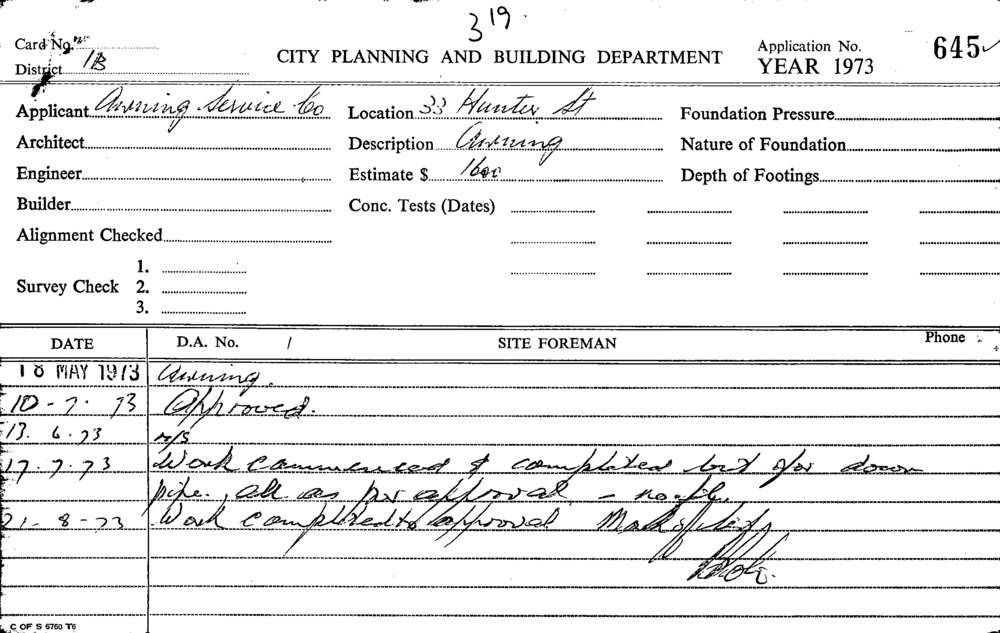 319.
Card No.
District 1B
CITY PLANNING AND BUILDING DEPARTMENT
Application No. 645
YEAR 1973
Applicant Awning Service Co
Location 33 Hunter St
Foundation Pressure
Architect
Description Awning
Nature of Foundation
Engineer
Estimate $ 1600
Depth of Footings
Builder
Conc. Tests (Dates)
Alignment Checked
1.
Survey Check 2.
3.
DATE D.A. No. / SITE FOREMAN Phone
18 MAY 1973 Awning.
10-7-73 Approved.
13.6.73 n/s
17.7.73 Work commenced & completed but for down
pipe, all as per approval -
21-8-73 Work completed to approval
C OF S 6760 T6